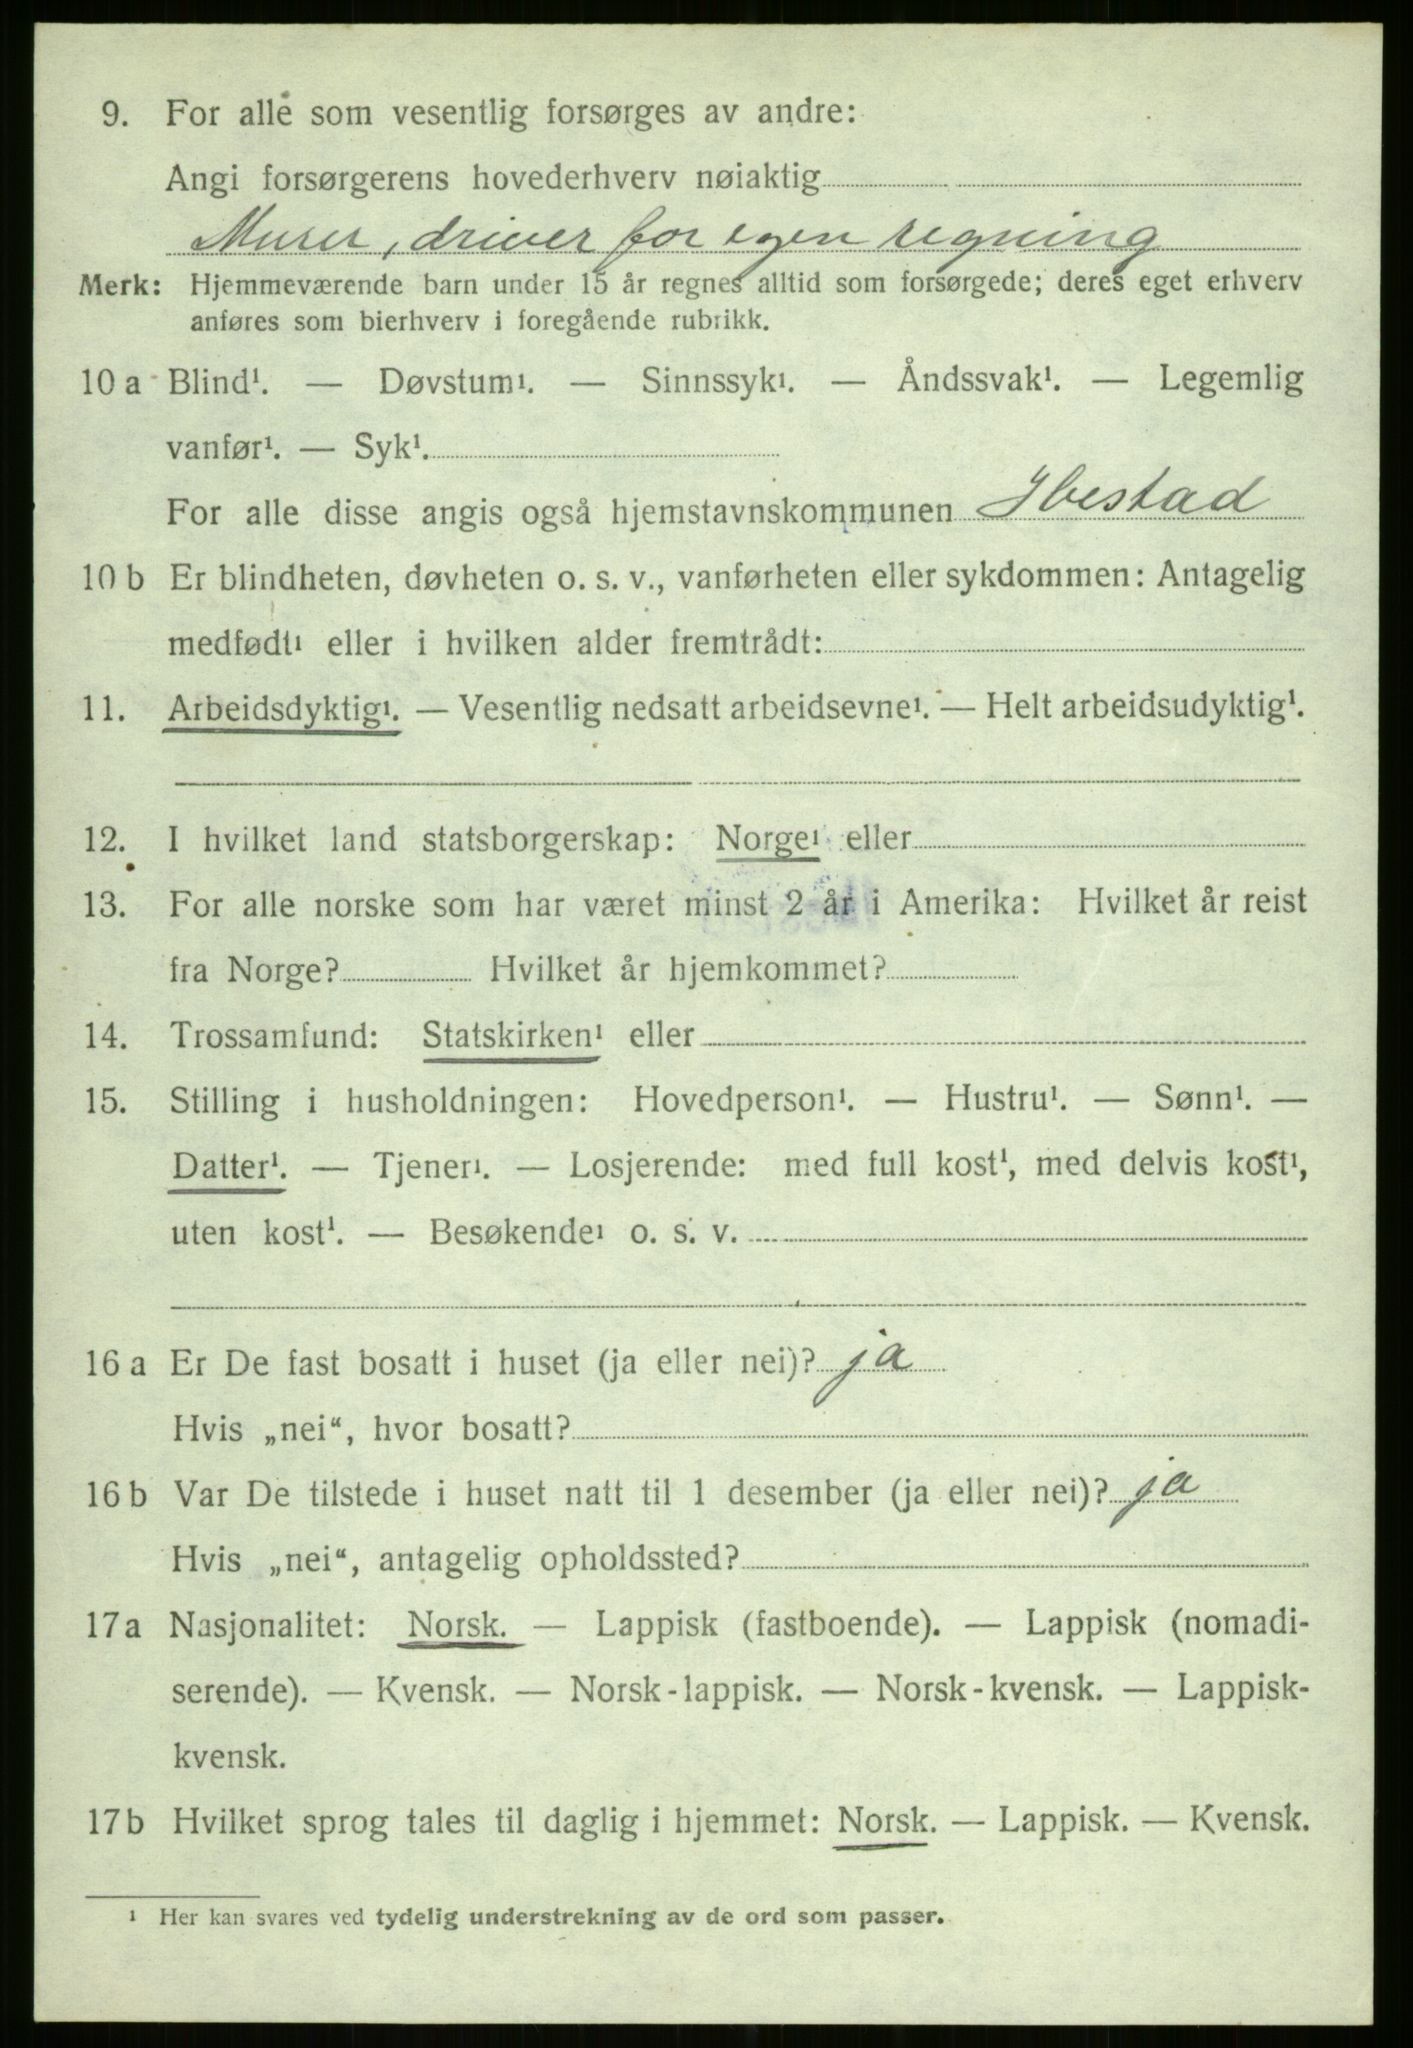 9. For alle som vesentlig forsørges av andre:
Angi forsørgerens hovederhverv nøiaktig
Murer, driver for egen regning
Merk: Hjemmeværende barn under 15 år regnes alltid som forsørgede; deres eget erhverv
anføres som bierhverv i foregående rubrikk.
10 a Blind¹. — Døvstum¹. — Sinnssyk¹. — Åndssvak¹. — Legemlig
vanfør¹. — Syk¹.
For alle disse angis også hjemstavnskommunen Ibestad
10 b Er blindheten, døvheten o. s. v., vanførheten eller sykdommen: Antagelig
medfødt¹ eller i hvilken alder fremtrådt:
11. Arbeidsdyktig¹. — Vesentlig nedsatt arbeidsevne¹. — Helt arbeidsudyktig¹.
12. I hvilket land statsborgerskap: Norge¹ eller
13. For alle norske som har været minst 2 år i Amerika: Hvilket år reist
fra Norge? Hvilket år hjemkommet?
14. Trossamfund: Statskirken¹ eller
15. Stilling i husholdningen: Hovedperson¹. — Hustru¹. — Sønn¹. —
Datter¹. — Tjener¹. — Losjerende: med full kost¹, med delvis kost¹,
uten kost¹. — Besøkende¹ o. s. v.
16 a Er De fast bosatt i huset (ja eller nei)? ja
Hvis „nei“, hvor bosatt?
16 b Var De tilstede i huset natt til 1 desember (ja eller nei)? ja
Hvis „nei“, antagelig opholdssted?
17 a Nasjonalitet: Norsk. — Lappisk (fastboende). — Lappisk (nomadi-
serende). — Kvensk. — Norsk-lappisk. — Norsk-kvensk. — Lappisk-
kvensk.
17 b Hvilket sprog tales til daglig i hjemmet: Norsk. — Lappisk. — Kvensk.
¹ Her kan svares ved tydelig understrekning av de ord som passer.